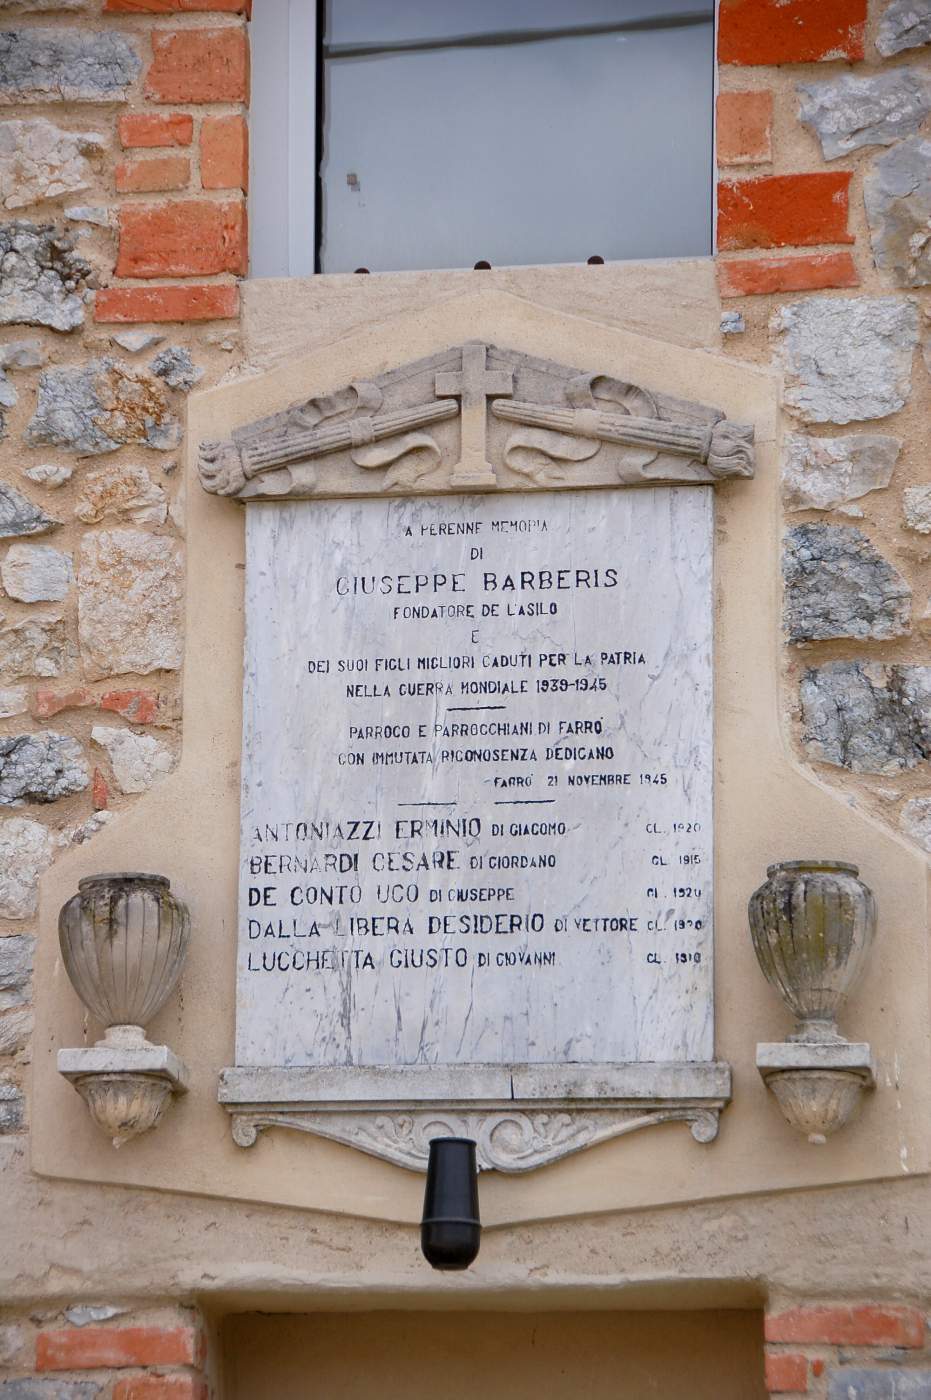 A PERENNE MEMORIA
DI
GIUSEPPE BARBERIS
FONDATORE DE L'ASILO
E
DEI SUOI FIGLI MIGLIORI CADUTI PER LA PATRIA
NELLA GUERRA MONDIALE 1939-1945
PARROCO E PARROCCHIANI DI FARRÒ
CON IMMUTATA RICONOSENZA DEDICANO
FARRÒ 21 NOVEMBRE 1945
ANTONIAZZI ERMINIO DI GIACOMO CL. 1920
BERNARDI CESARE DI GIORDANO CL. 1915
DE CONTO UGO DI GIUSEPPE CL. 1920
DALLA LIBERA DESIDERIO DI VETTORE CL. 1920
LUCCHETTA GIUSTO DI GIOVANNI CL. 1910